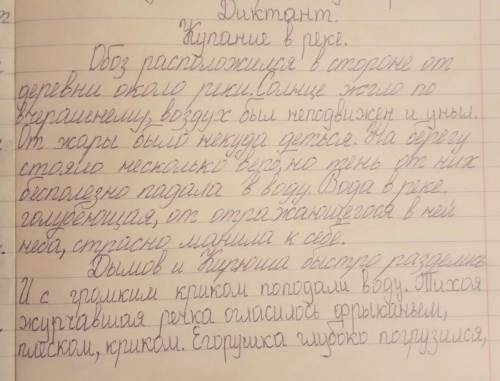 Диктант.
Купание в реке.
Обоз расположился в стороне от
деревни около реки. Солнце жгло по
вчерашнему, воздух был неподвижен и уныл.
От жары было некуда деться. На берегу
стояло несколько верб, но тень от них
бесполезно падала в воду. Вода в реке.
голубеющая, от отражающегося в ней
неба, страсно манила к себе.
Дымов и Кирюша быстро разделись
И с громким криком поподали воду. Тихая
журчавшая речка огласилось фырканьем,
плеском, криком. Егорушка глубоко погрузился,